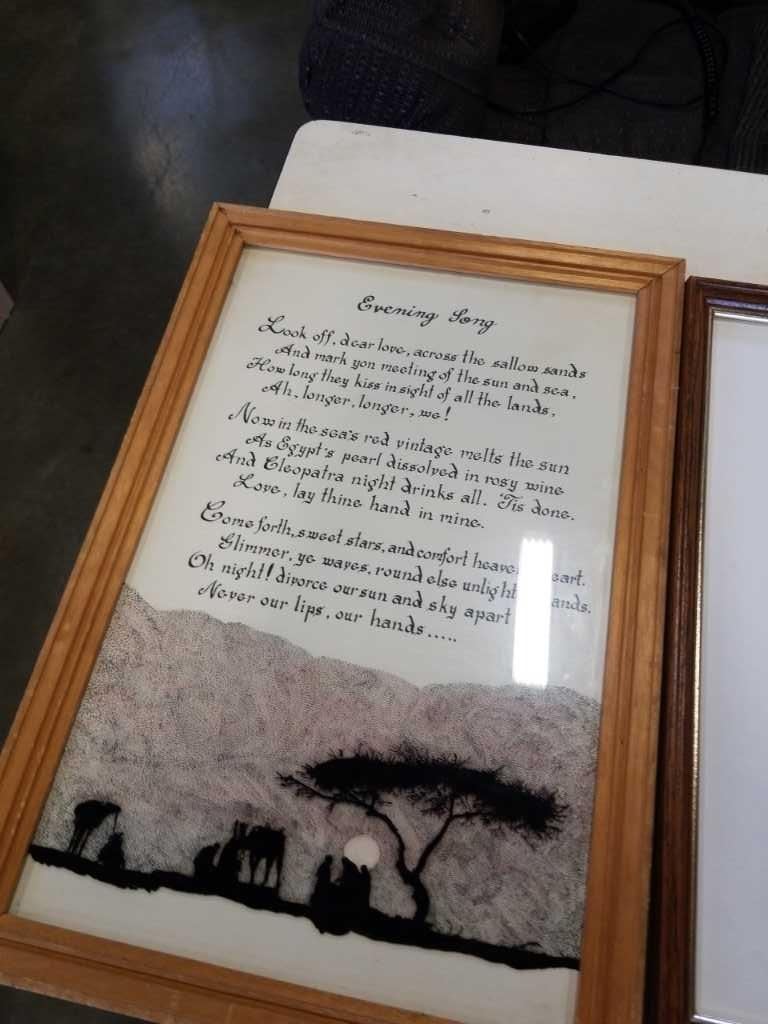 Evening Song
Look off, dear love, across the sallow sands
And mark yon meeting of the sun and sea,
How long they kiss in sight of all the lands,
Ah, longer, longer, we!
Now in the sea's red vintage melts the sun
As Egypt's pearl dissolved in rosy wine
And Cleopatra night drinks all. 'Tis done.
Love, lay thine hand in mine.
Come forth, sweet stars, and comfort
Glimmer, ye waves, round else
Oh night! divorce our sun and sky apart
Never our lips, our hands.....